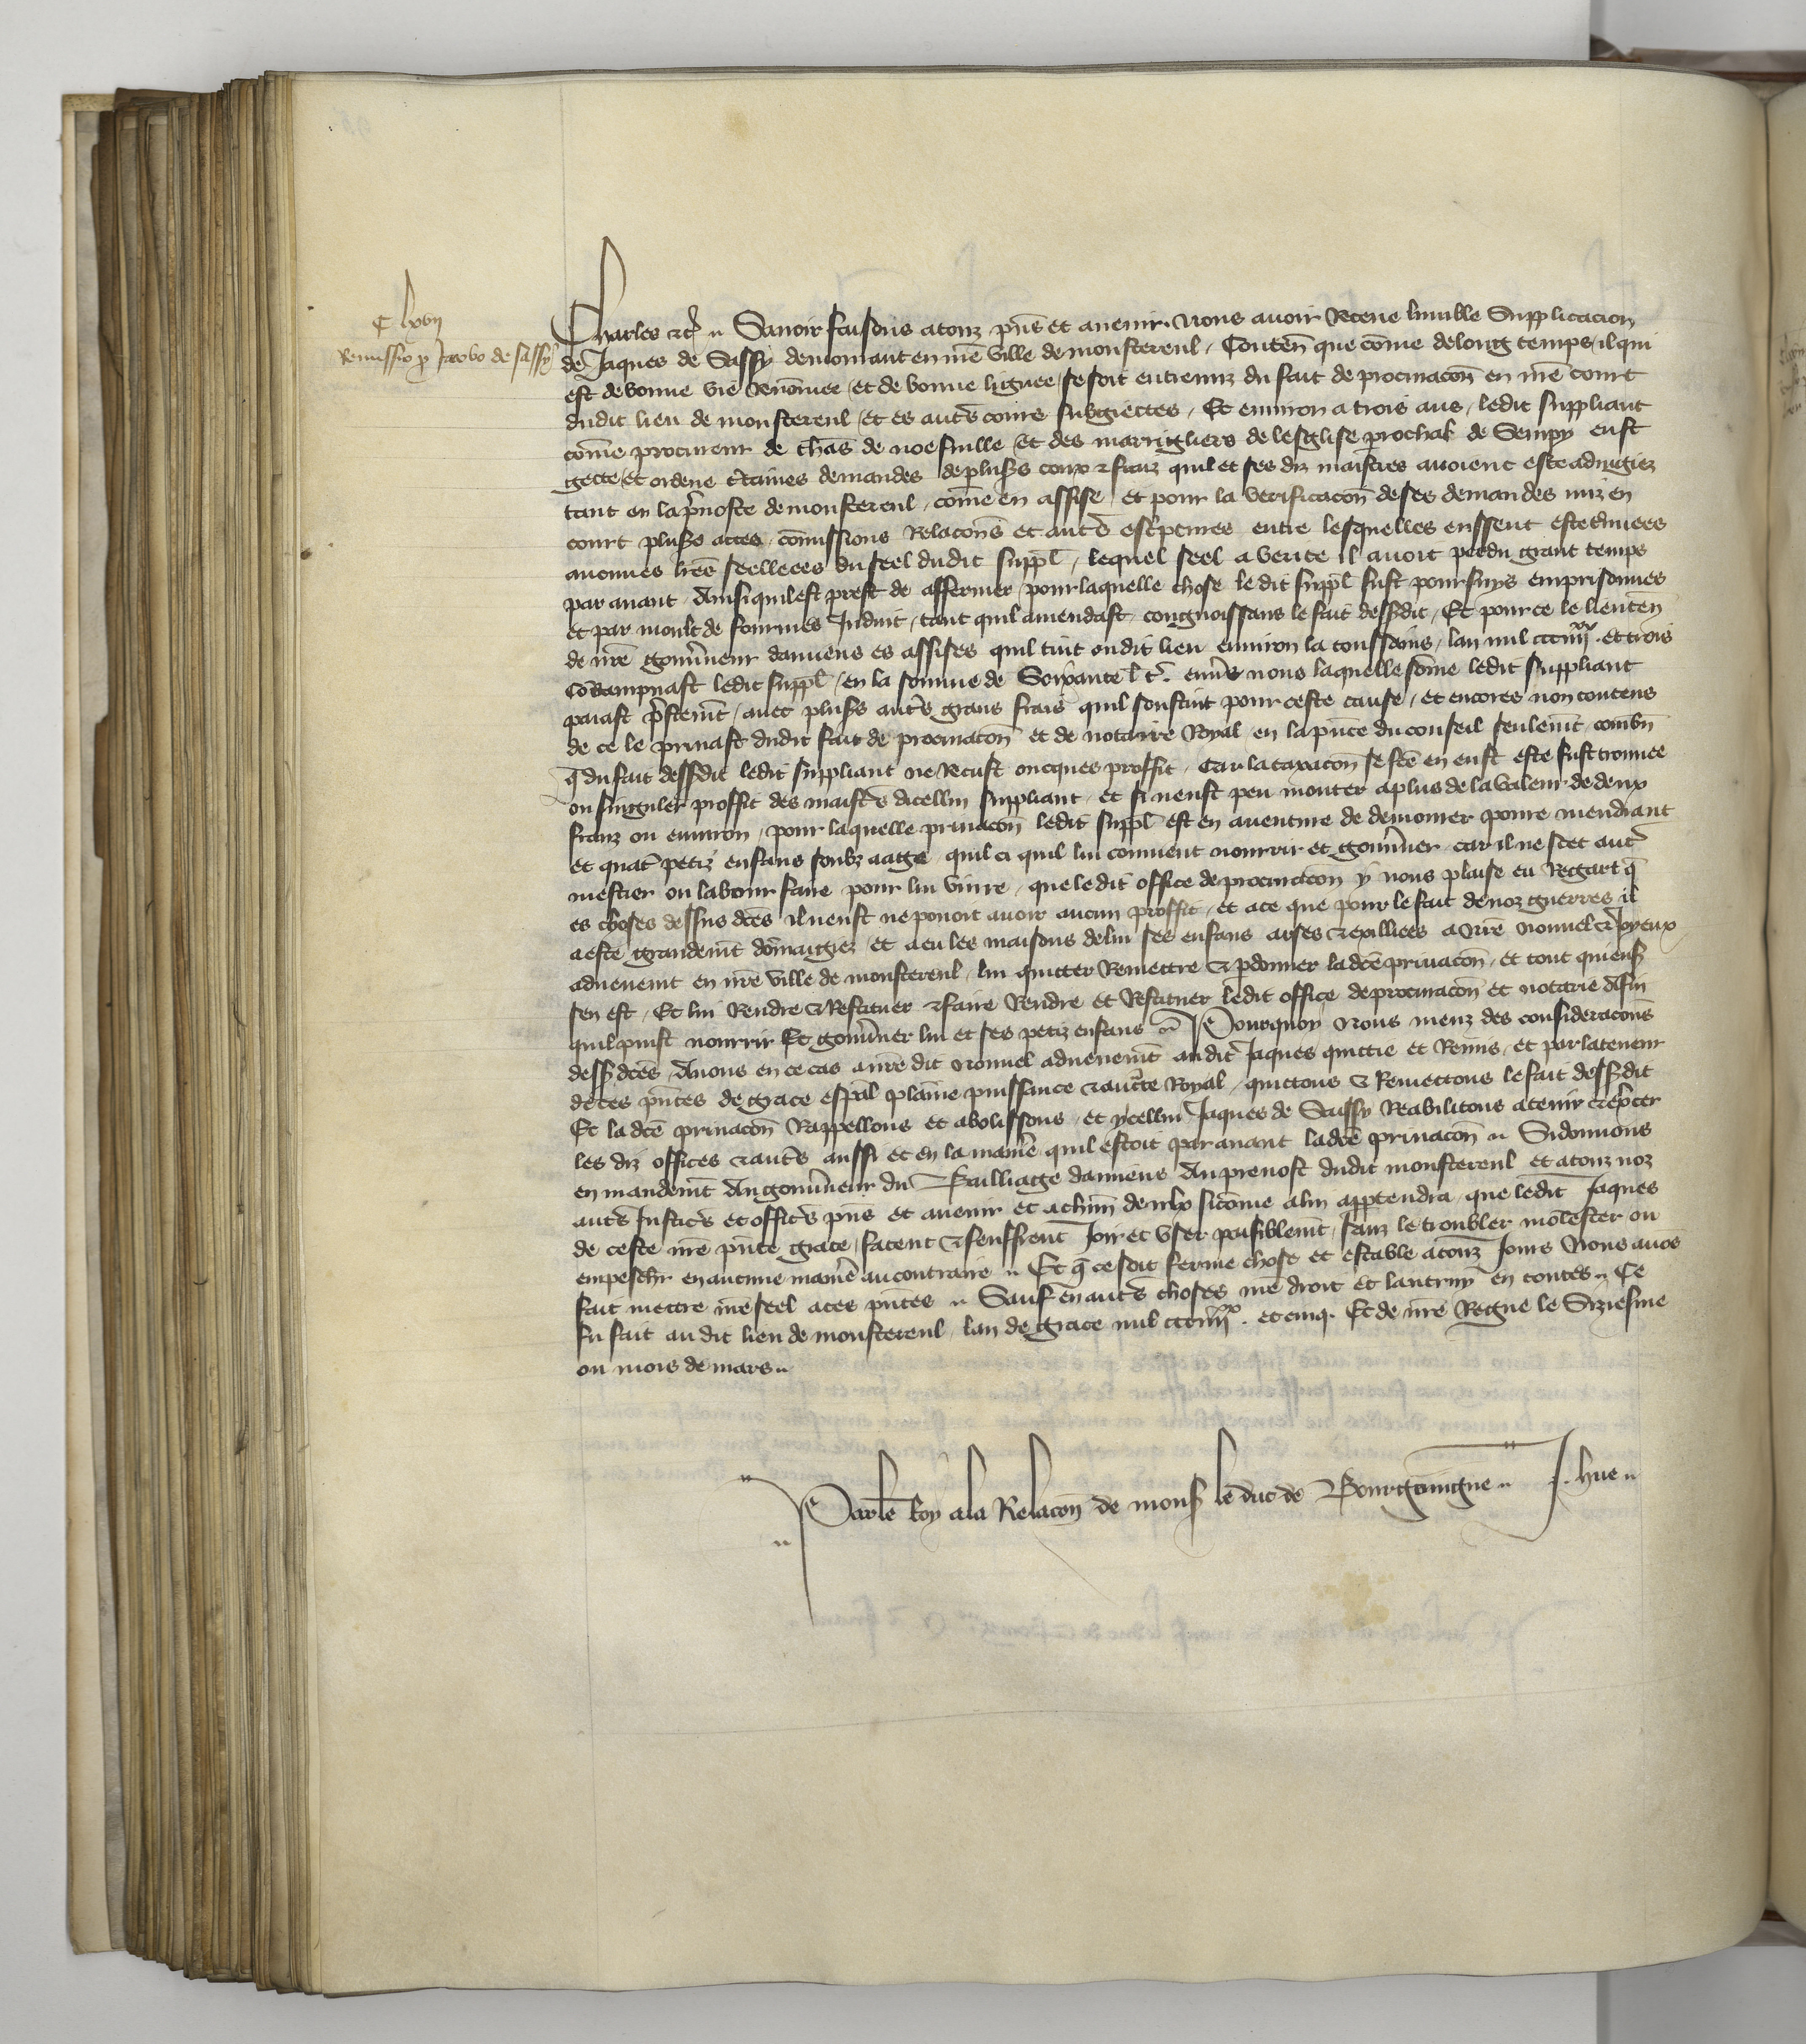 C lxvij
Remissio p Jacobo de Sassy
Charles etc. Savoir faisons a touz pñs et avenir. Nous avoir receue lumble supplicacion
de Jaques de Sassy demourant en nre ville de monstereul, Conteñ que cõme de long temps, il qui
est de bonne vie renõmee et de bonne lignee se soit entremiz du fait de procuracoñ en nre court
dudit lieu de monstereul et es auts cours subgiettes, Et environ a trois ans, ledit suppliant
cõme procureur de Chãs de noefville et des marrigliers de lesglise prochal de Sempy eust
gette et ordene ctaines demandes de plus coux et fraiz quil et ses diz maistres avoient este adiugiez
tant en la pvoste de monstereul, cõme en assise, et pour la verificacoñ de ses demandes miz en
court plus actes, cõmissions relacons et auts escriptures entre lesquelles eussent este trouvees
aucunes lres seellees du seel dudit suppl, lequel seel a verite il avoit perdu grant temps
par avant, Ainsi quil est prest de affermer, pour laquelle chose ledit suppl fust poursuys emprisonnes
et par moult de fourmes Induit, tant quil amendast, congnoissans le fait dessdit, Et pour ce le lieuteñ
de nre gouvneur damiens es assises quil tint oudit lieu environ la toussains, lan mil ccciiiixx et trois
Condampnast ledit suppl, en la somme de Soixante l t. envs nous laquelle sõme ledit suppliant
paiast pstemt, avec pluss auts grans frais quil soustint pour ceste cause, et encores non contens
de ce le privast dudit fait de procuracoñ et de notairie Royal en la pñce du conseil seulemt, combñ
q du fait dessdit ledit suppliant ne receust oncques proffit, Car la taxacoñ se fte en eust este fust tournee
ou singuler proffit des maists dicellui suppliant, et si neust peu monter a plus de la valeur de deux
frans ou environ, pour laquelle privacoñ ledit suppl est en aventure de demourer povre mendiant
et quat petiz enfans soubz aatge, quil a quil lui convient nourrir et gouvner, car il ne scet aut
mestier ou labour faire pour lui vivre, que ledit office de procuracoñ y nous plaise eu regart q
es choses dessus dtes il neust ne povoit avoir aucun proffit, et a ce que pour le fait de noz guerres il
a este grandemt dõmaigiez, et a eu les maisons de lui ses enfans arses et exilliees a nre nouvel et Joyeux
advenemt en nre ville de monstereul, lui quitter remettre et pdonner ladte privacoñ, et tout quiens
sen est, Et lui rendre et restituer et faire rendre et restituer ledit office de procuracoñ et notarie Afin
quil puist nourrir et gouvner lui et ses petiz enfans Pourquoy Nous meuz des consideracons
dess dtes, Avons en ce cas a nre dit nouvel advenemt audit Jaques quittie et remis, et par la teneur
de ces pñtes de grace espal plaine puissance et auctte Royal, quittons et remettons le fait dessdit
Et ladte privacoñ rappellons et abolissons, et ycellui Jaques de Sassy reabilitons a tenir et expcer
les diz offices et auts aussi et en la maniere quil estoit par avant ladte privacoñ Si donnons
en mandemt Au gouvneur du Bailliatge damiens Au prevost dudit monstereul et a touz noz
auts Justics et offics pñs et avenir et a chũn deulx si cõme a lui apptendra, que ledit Jaques
de ceste nre pñte grace, facent et seuffrent Joir et user paisiblemt, sans le troubler molester ou
empeschr en aucune maniere au contraire Et q ce soit ferme chose et estable a touz Jours Nous avõs
fait mettre nre seel a ces pñtes Sauf en auts choses nre droit et lautruy en toutes Ce
fu fait au dit lieu de monstereul, lan de grace mil ccciiiixx et cinq. Et de nre Regne le Siziesme
ou mois de mars
Par le Roy a la Relacoñ de mons le duc de Bourgoingne J. hue